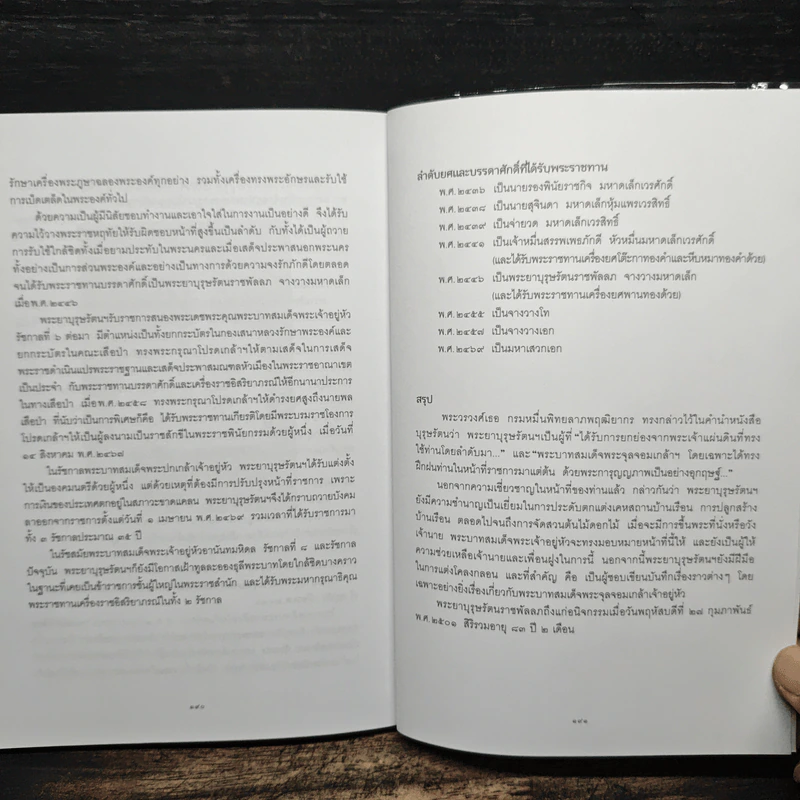 รักษาเครื่องพระภูษาฉลองพระองค์ทุกอย่าง รวมทั้งเครื่องทรงพระอักษรและรับใช้
การเบ็ดเตล็ดในพระองค์ทั่วไป
ด้วยความเป็นผู้มีนิสัยชอบทำงานและเอาใจใส่ในการงานเป็นอย่างดี จึงได้รับ
ความไว้วางพระราชหฤทัยให้รับผิดชอบหน้าที่สูงขึ้นเป็นลำดับ กับทั้งได้เป็นผู้ถวาย
การรับใช้ใกล้ชิดทั้งเมื่อยามประทับในพระนครและเมื่อเสด็จประพาสนอกพระนคร
ทั้งอย่างเป็นการส่วนพระองค์และอย่างเป็นทางการด้วยความจงรักภักดีโดยตลอด
จนได้รับพระราชทานบรรดาศักดิ์เป็นพระยาบุรุษรัตนราชพัลลภ จางวางมหาดเล็ก
เมื่อพ.ศ.๒๔๔๖
พระยาบุรุษรัตนฯรับราชการสนองพระเดชพระคุณพระบาทสมเด็จพระเจ้าอยู่หัว
รัชกาลที่ ๖ ต่อมา มีตำแหน่งเป็นทั้งยกกระบัตรในกองเสนาหลวงรักษาพระองค์และ
ยกกระบัตรในคณะเสือป่า ทรงพระกรุณาโปรดเกล้าฯให้ตามเสด็จในการเสด็จ
พระราชดำเนินแปรพระราชฐานและเสด็จประพาสมณฑลหัวเมืองในพระราชอาณาเขต
เป็นประจำ กับพระราชทานบรรดาศักดิ์และเครื่องราชอิสริยาภรณ์ให้อีกนานาประการ
ในทางเสือป่า เมื่อพ.ศ.๒๔๕๘ ทรงพระกรุณาโปรดเกล้าฯให้ดำรงยศสูงถึงนายพล
เสือป่า ที่นับว่าเป็นการพิเศษก็คือ ได้รับพระราชทานเกียรติโดยมีพระบรมราชโองการ
โปรดเกล้าฯให้เป็นผู้ลงนามเป็นราชสักขีในพระราชพินัยกรรมด้วยผู้หนึ่ง เมื่อวันที่
๑๔ สิงหาคม พ.ศ.๒๔๖๘
ในรัชกาลพระบาทสมเด็จพระปกเกล้าเจ้าอยู่หัว พระยาบุรุษรัตนฯได้รับแต่งตั้ง
ให้เป็นองคมนตรีด้วยผู้หนึ่ง แต่ด้วยเหตุที่ต้องมีการปรับปรุงหน้าที่ราชการ เพราะ
การเงินของประเทศตกอยู่ในสภาวะขาดแคลน พระยาบุรุษรัตนฯจึงได้กราบถวายบังคม
ลาออกจากราชการตั้งแต่วันที่ ๑ เมษายน พ.ศ.๒๔๖๙ รวมเวลาที่ได้รับราชการมา
ทั้ง ๓ รัชกาลประมาณ ๓๕ ปี
ในรัชสมัยพระบาทสมเด็จพระเจ้าอยู่หัวอานันทมหิดล รัชกาลที่ ๘ และรัชกาล
ปัจจุบัน พระยาบุรุษรัตนฯก็ยังมีโอกาสเฝ้าทูลละอองธุลีพระบาทโดยใกล้ชิดบางคราว
ในฐานะที่เคยเป็นข้าราชการชั้นผู้ใหญ่ในพระราชสำนัก และได้รับพระมหากรุณาธิคุณ
พระราชทานเครื่องราชอิสริยาภรณ์ในทั้ง ๒ รัชกาล
๑๙๐
ลำดับยศและบรรดาศักดิ์ที่ได้รับพระราชทาน
พ.ศ.๒๔๓๖ เป็นนายรองพินัยราชกิจ มหาดเล็กเวรศักดิ์
พ.ศ.๒๔๓๘ เป็นนายสุจินดา มหาดเล็กหุ้มแพรเวรสิทธิ์
พ.ศ.๒๔๓๙ เป็นจ่ายวด มหาดเล็กเวรสิทธิ์
พ.ศ.๒๔๔๑ เป็นเจ้าหมื่นสรรพเพธภักดี หัวหมื่นมหาดเล็กเวรศักดิ์
(และได้รับพระราชทานเครื่องยศโต๊ะกาทองคำและหีบหมาทองคำด้วย)
พ.ศ.๒๔๔๖ เป็นพระยาบุรุษรัตนราชพัลลภ จางวางมหาดเล็ก
(และได้รับพระราชทานเครื่องยศพานทองด้วย)
พ.ศ.๒๔๕๕ เป็นจางวางโท
พ.ศ.๒๔๕๗ เป็นจางวางเอก
พ.ศ.๒๔๖๙ เป็นมหาเสวกเอก
สรุป
พระวรวงศ์เธอ กรมหมื่นพิทยลาภพฤฒิยากร ทรงกล่าวไว้ในคำนำหนังสือ
บุรุษรัตนว่า พระยาบุรุษรัตนฯเป็นผู้ที่ "ได้รับการยกย่องจากพระเจ้าแผ่นดินที่ทรง
ใช้ท่านโดยลำดับมา..." และ "พระบาทสมเด็จพระจุลจอมเกล้าฯ โดยเฉพาะได้ทรง
ฝึกฝนท่านในหน้าที่ราชการมาแต่ต้น ด้วยพระการุญญภาพเป็นอย่างอุกฤษฐ์..."
นอกจากความเชี่ยวชาญในหน้าที่ของท่านแล้ว กล่าวกันว่า พระยาบุรุษรัตนฯ
ยังมีความชำนาญเป็นเยี่ยมในการประดับตกแต่งเคหสถานบ้านเรือน การปลูกสร้าง
บ้านเรือน ตลอดไปจนถึงการจัดสวนต้นไม้ดอกไม้ เมื่อจะมีการขึ้นพระที่นั่งหรือวัง
เจ้านาย พระบาทสมเด็จพระเจ้าอยู่หัวจะทรงมอบหมายหน้าที่นี้ให้ และยังเป็นผู้ให้
ความช่วยเหลือเจ้านายและเพื่อนฝูงในการนี้ นอกจากนี้พระยาบุรุษรัตนฯยังมีฝีมือ
ในการแต่งโคลงกลอน และที่สำคัญ คือ เป็นผู้ชอบเขียนบันทึกเรื่องราวต่างๆ โดย
เฉพาะอย่างยิ่งเรื่องเกี่ยวกับพระบาทสมเด็จพระจุลจอมเกล้าเจ้าอยู่หัว
พระยาบุรุษรัตนราชพัลลภถึงแก่อนิจกรรมเมื่อวันพฤหัสบดีที่ ๒๗ กุมภาพันธ์
พ.ศ.๒๕๐๑ สิริรวมอายุ ๘๓ ปี ๒ เดือน
๑๙๑